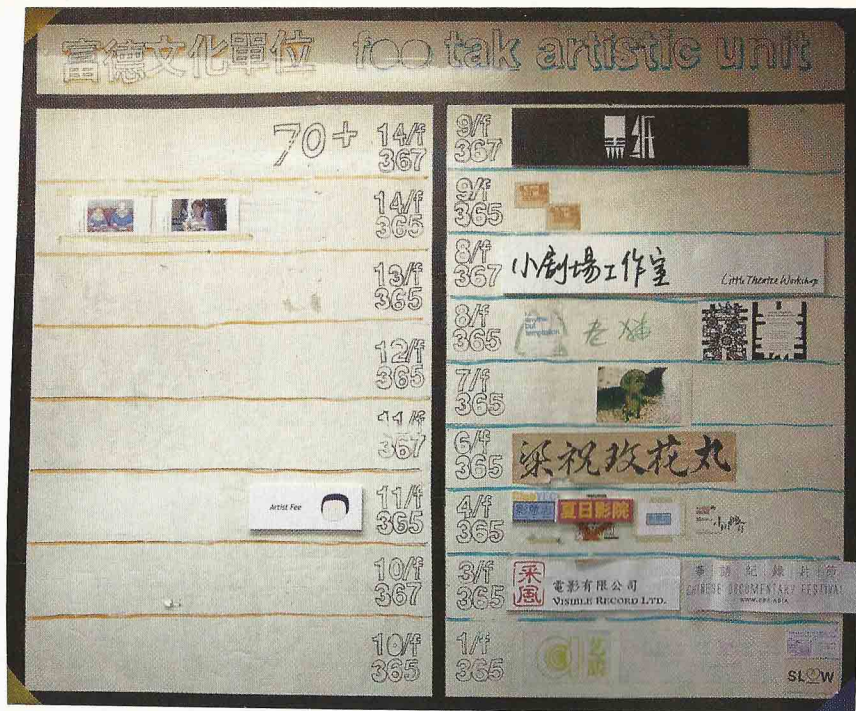 富德文化單位 foo tak artistic unit
70+ 14/f 367
14/f 365
13/f 365
12/f 365
11/f 367
Artist Fee 11/f 365
10/f 367
10/f 365
9/f 367 紙
9/f 365
8/f 367 小劇場工作室 Little Theatre Workshop
8/f 365 anything but temptation 老貓
7/f 365
6/f 365 梁祝玫花丸
4/f 365 影意志 夏日影院
3/f 365 采風電影有限公司 VISIBLE RECORD LTD. 華語紀錄片節 CHINESE DOCUMENTARY FESTIVAL
1/f 365 艺鵠 SLOW